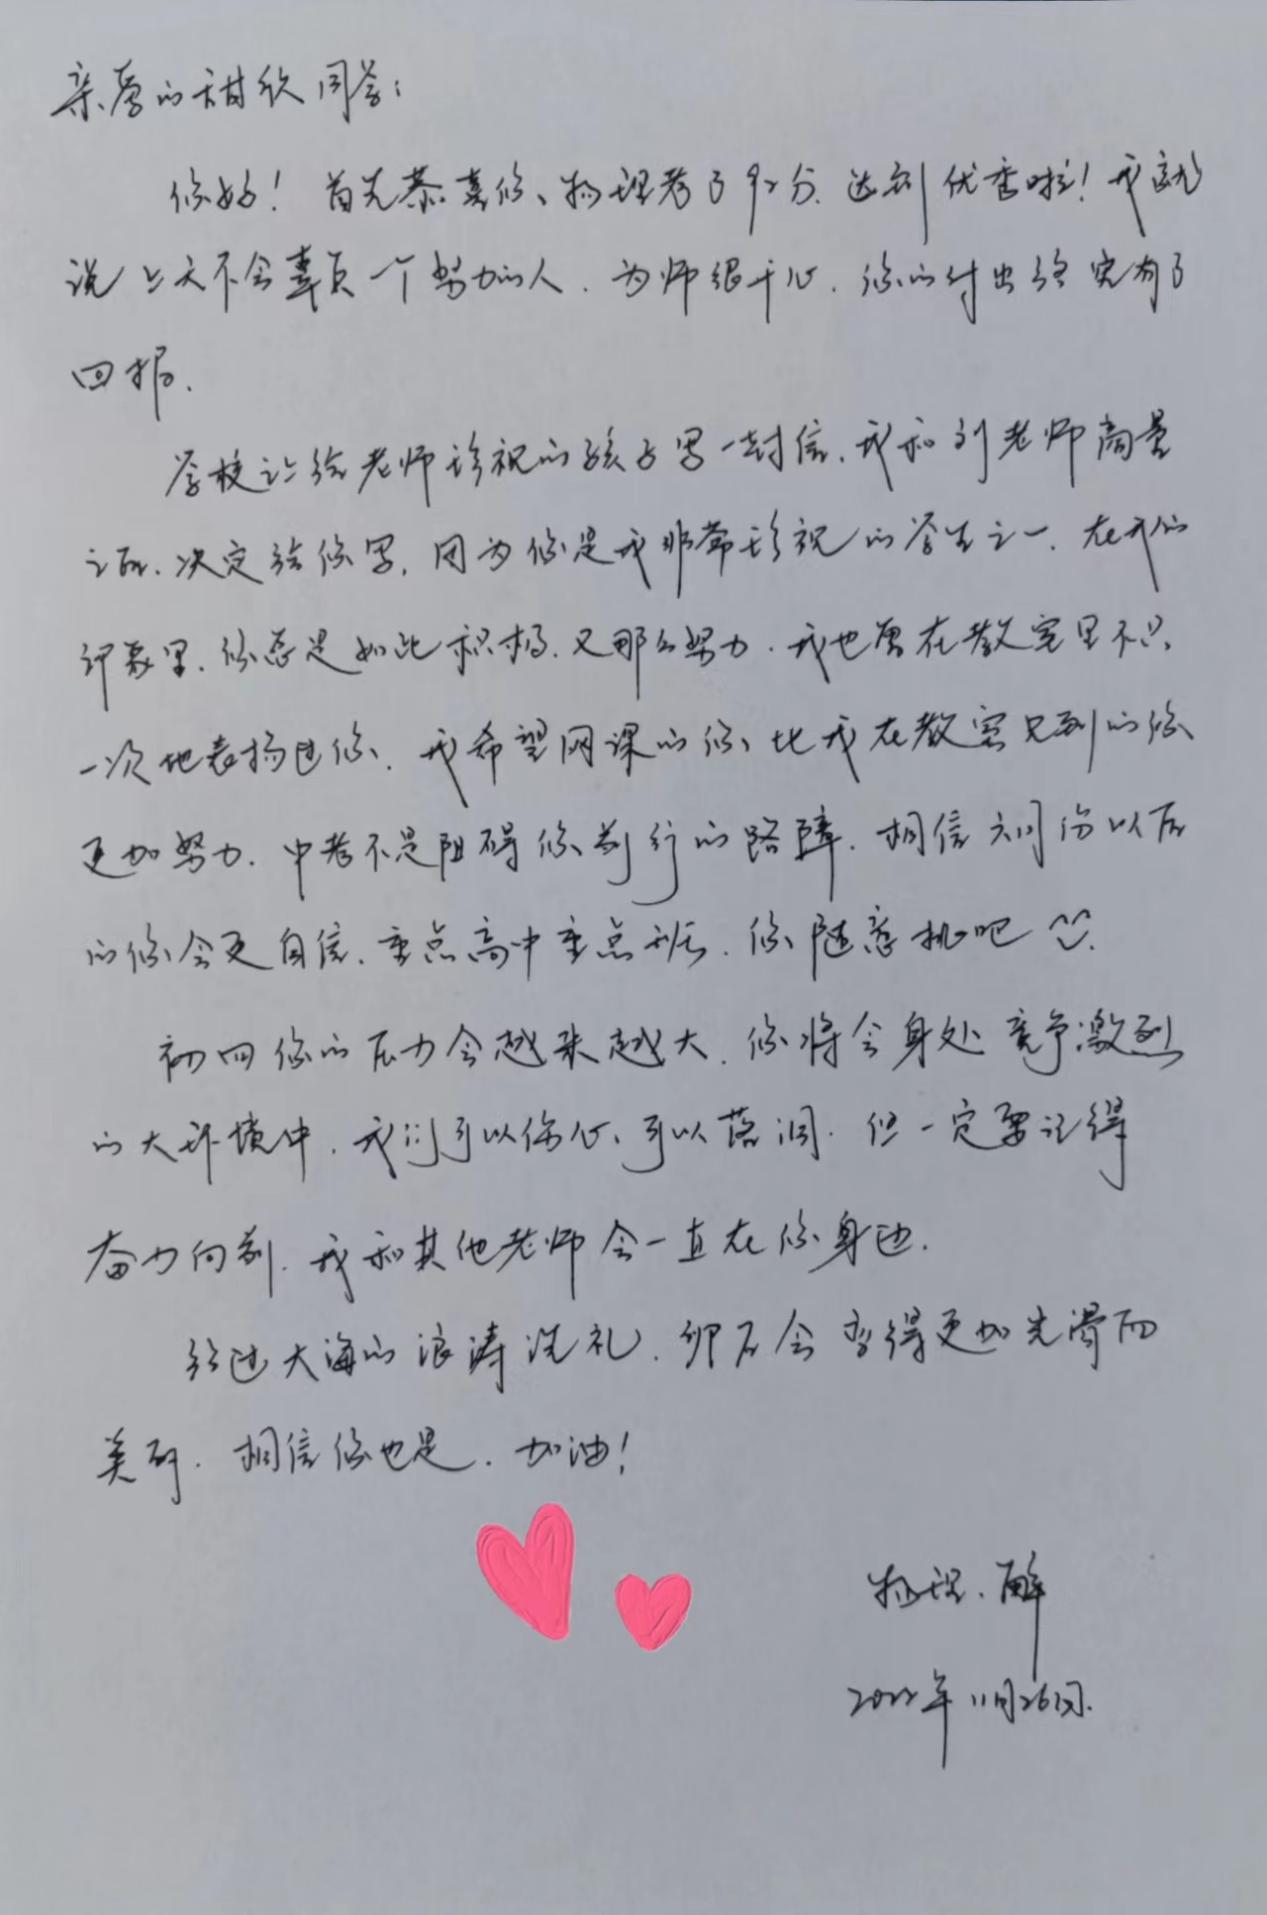 亲爱的甜欣同学:
你好！首先恭喜你、物理考了92分.达到优秀啦！我就
说上天不会辜负一个努力的人.为师很开心.你的付出终究有了
回报.
学校让给老师珍视的孩子写一封信.我和刘老师商量
之后.决定给你写.因为你是我非常珍视的学生之一.在我的
印象里.你总是如此积极.又那么努力.我也曾在教室里不只
一次地表扬过你.我希望网课的你、比我在教室见到的你
更加努力.中考不是阻碍你前行的路障.相信六月份以后
的你会更自信.重点高中重点班.你随意挑吧^^.
初四你的压力会越来越大.你将会身处竞争激烈
的大环境中.我们可以伤心、可以落泪.但一定要记得
奋力向前.我和其他老师会一直在你身边.
经过大海的浪涛洗礼.卵石会变得更加光滑而
美丽.相信你也是.加油！
物理.解
2022年11月26日.